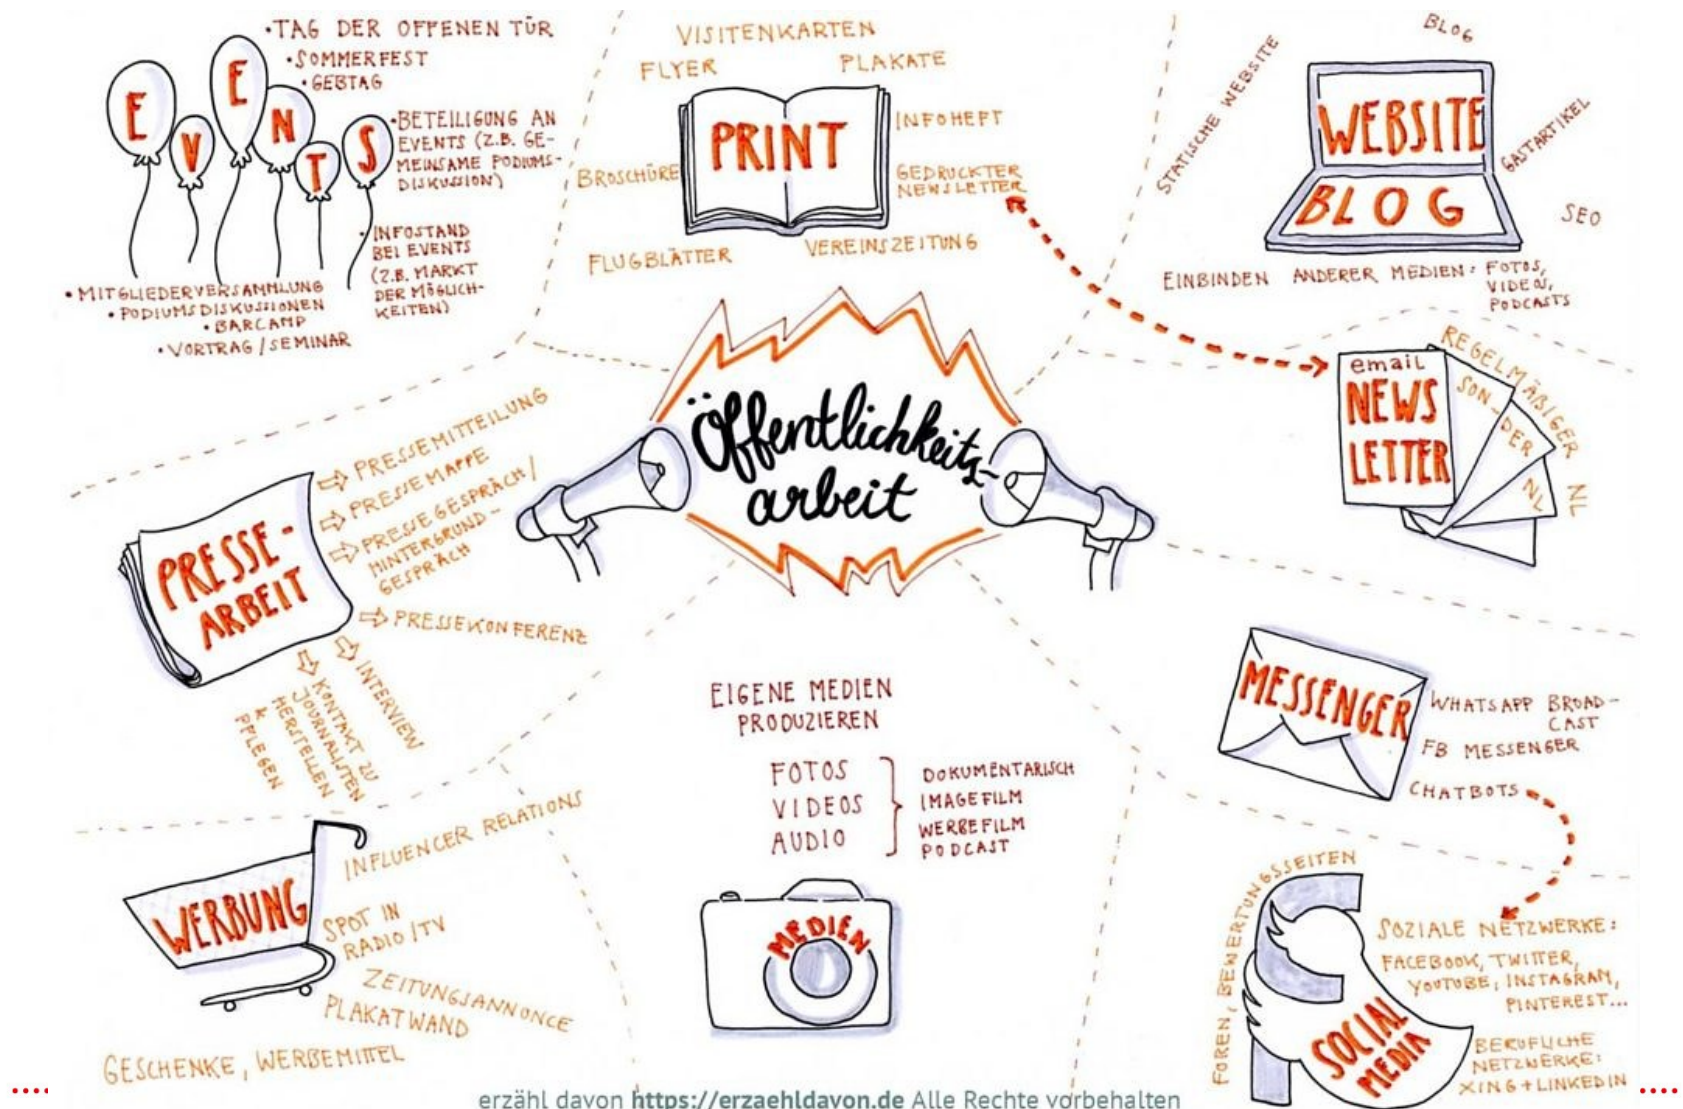 EVENTS
•TAG DER OFFENEN TÜR
•SOMMERFEST
•GEBTAG
•BETEILIGUNG AN
EVENTS (Z.B. GE-
MEINSAME PODIUMS-
DISKUSSION)
•INFOSTAND
BEI EVENTS
(Z.B. MARKT
DER MÖGLICH-
KEITEN)
•MITGLIEDERVERSAMMLUNG
•PODIUMSDISKUSSIONEN
•BARCAMP
•VORTRAG/SEMINAR
VISITENKARTEN
FLYER
PLAKATE
PRINT
INFOHEFT
BROSCHÜRE
GEDRUCKTER
NEWSLETTER
FLUGBLÄTTER
VEREINSZEITUNG
BLOG
STATISCHE WEBSITE
WEBSITE
BLOG
GASTARTIKEL
SEO
EINBINDEN ANDERER MEDIEN: FOTOS,
VIDEOS,
PODCASTS
email
NEWS
LETTER
REGELMÄßIGER NL
SON-DER NL
Öffentlichkeits-
arbeit
PRESSE-
ARBEIT
PRESSEMITTEILUNG
PRESSEMAPPE
PRESSEGESPRÄCH/
HINTERGRUND-
GESPRÄCH
PRESSEKONFERENZ
INTERVIEW
KONTAKT ZU
JOURNALISTEN
HERSTELLEN
&
PFLEGEN
MESSENGER
WHATSAPP BROAD-
CAST
FB MESSENGER
CHATBOTS
EIGENE MEDIEN
PRODUZIEREN
FOTOS
VIDEOS
AUDIO
DOKUMENTARISCH
IMAGEFILM
WERBEFILM
PODCAST
MEDIEN
WERBUNG
INFLUENCER RELATIONS
SPOT IN
RADIO/TV
ZEITUNGSANNONCE
PLAKATWAND
GESCHENKE, WERBEMITTEL
FOREN, BEWERTUNGSSEITEN
SOCIAL
MEDIA
SOZIALE NETZWERKE:
FACEBOOK, TWITTER,
YOUTUBE, INSTAGRAM,
PINTEREST...
BERUFLICHE
NETZWERKE:
XING+LINKEDIN
erzähl davon https://erzaehldavon.de Alle Rechte vorbehalten